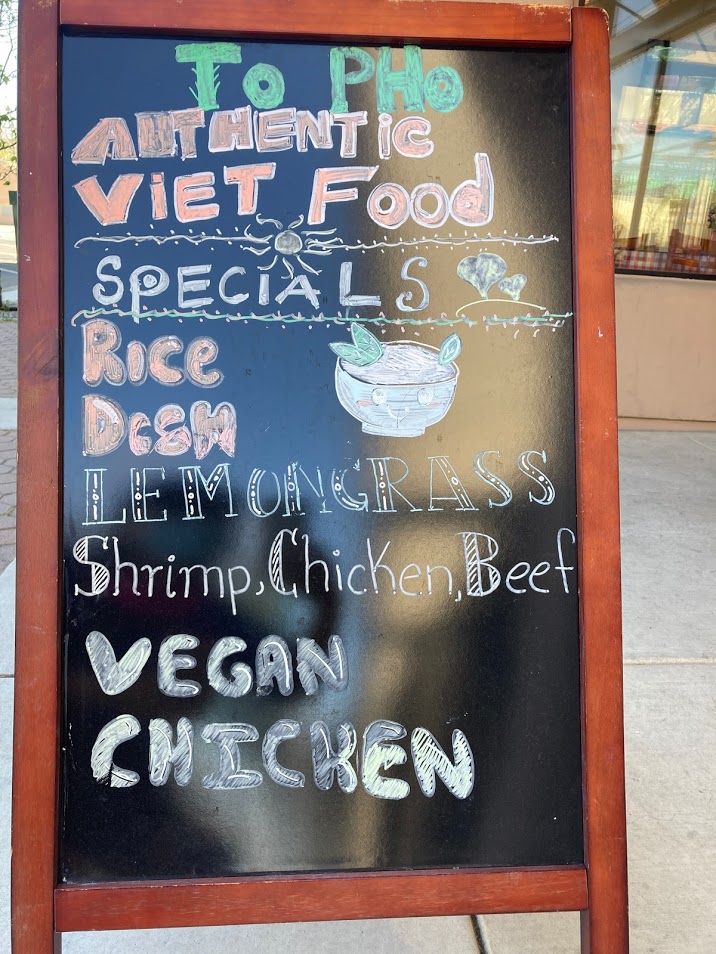 To PHo
AUTHENTiC
ViET Food
SPECiALS
Rice
DcsH
LEMONGRASS
Shrimp, Chicken, Beef
VEGAN
CHICKEN